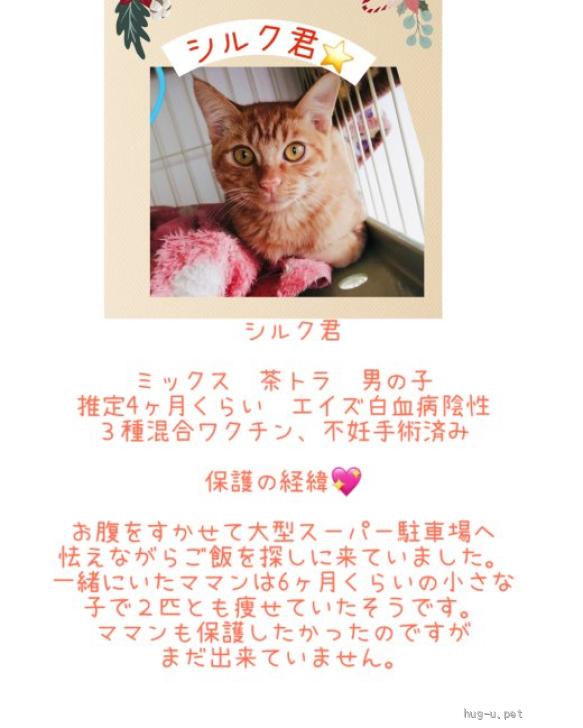 シルク君
シルク君
ミックス　茶トラ　男の子
推定4ヶ月くらい　エイズ白血病陰性
３種混合ワクチン、不妊手術済み
保護の経緯💖
お腹をすかせて大型スーパー駐車場へ
怯えながらご飯を探しに来ていました。
一緒にいたママンは6ヶ月くらいの小さな
子で２匹とも痩せていたそうです。
ママンも保護したかったのですが
まだ出来ていません。
hug-u.pet